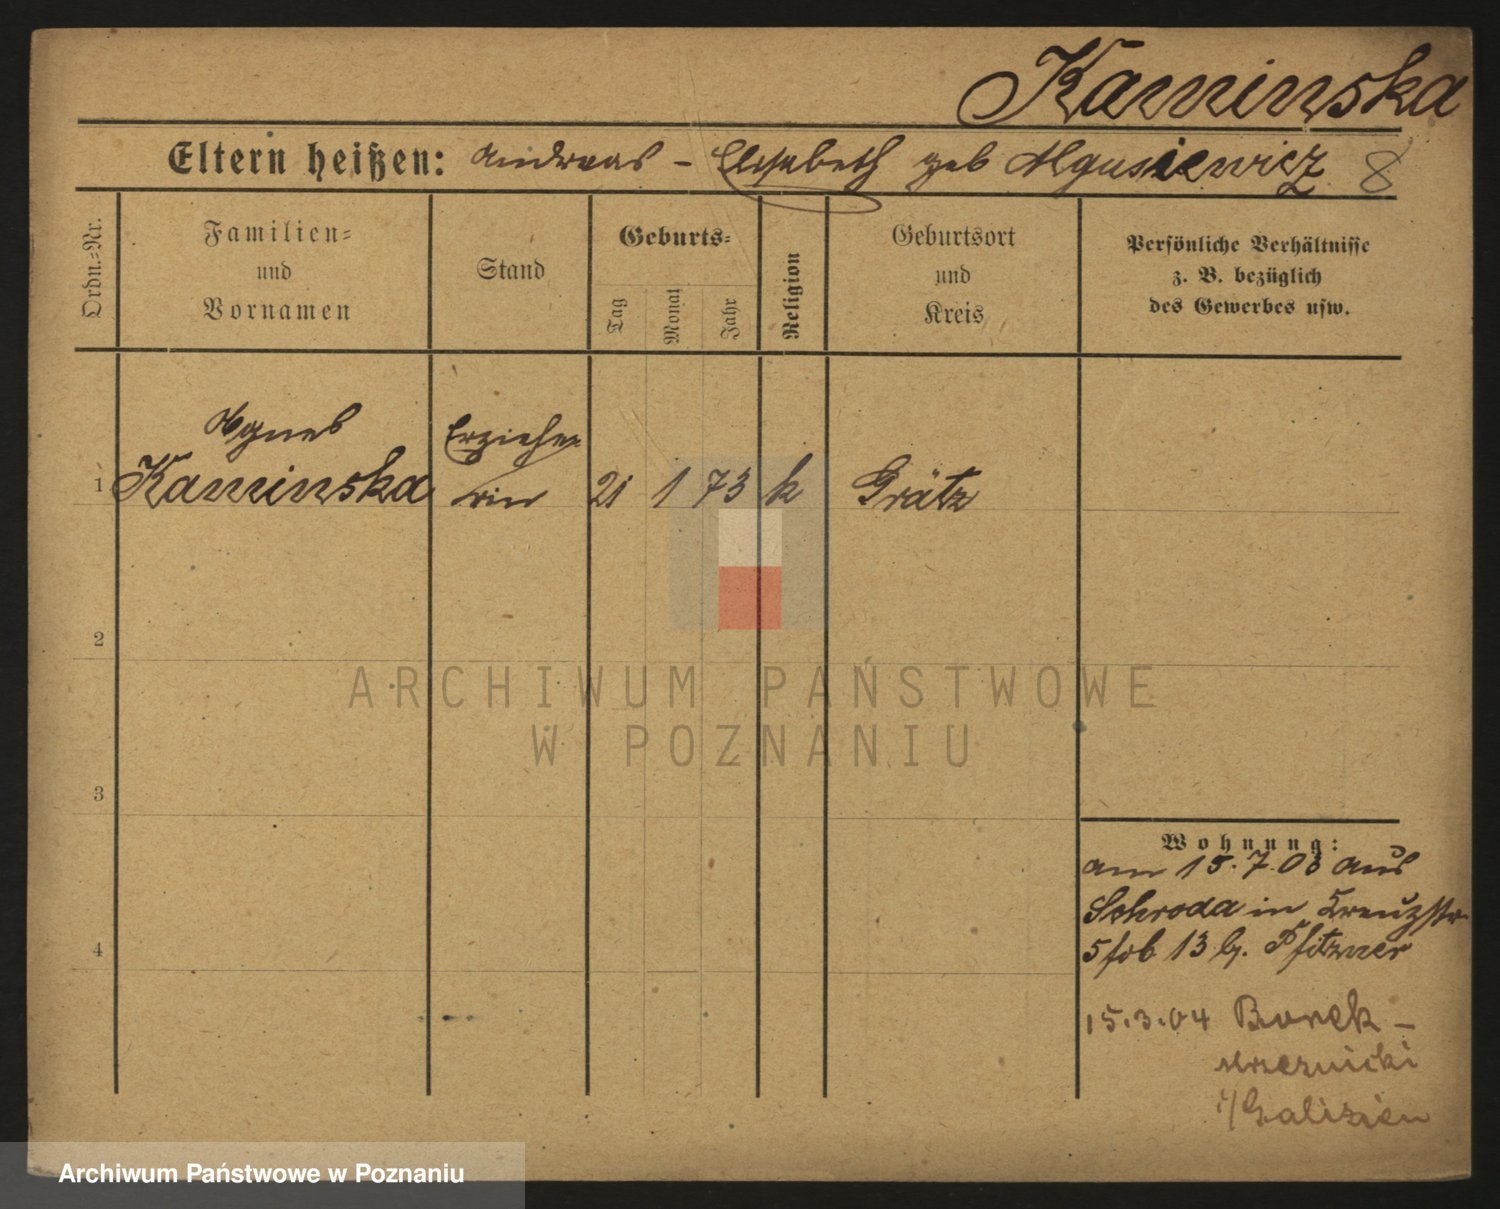 Kaminska
Eltern heißen: Andreas – Elisabeth geb 8
Ordn.-Nr.
Familien-
und
Vornamen
Stand
Geburts-
Tag
Monat
Jahr
Religion
Geburtsort
und
Kreis
Persönliche Verhältnisse
z. B. bezüglich
des Gewerbes usw.
Agnes Erziehe-
1 Kaminska rin 21 1 73 k Grätz
2
ARCHIWUM PAŃSTWOWE
W POZNANIU
3
4
Wohnung:
am 15.7.03 aus
Schroda in Kreuzstr
5 b. Pfitzner
15.3.04 Borek –
i/Galizien
Archiwum Państwowe w Poznaniu